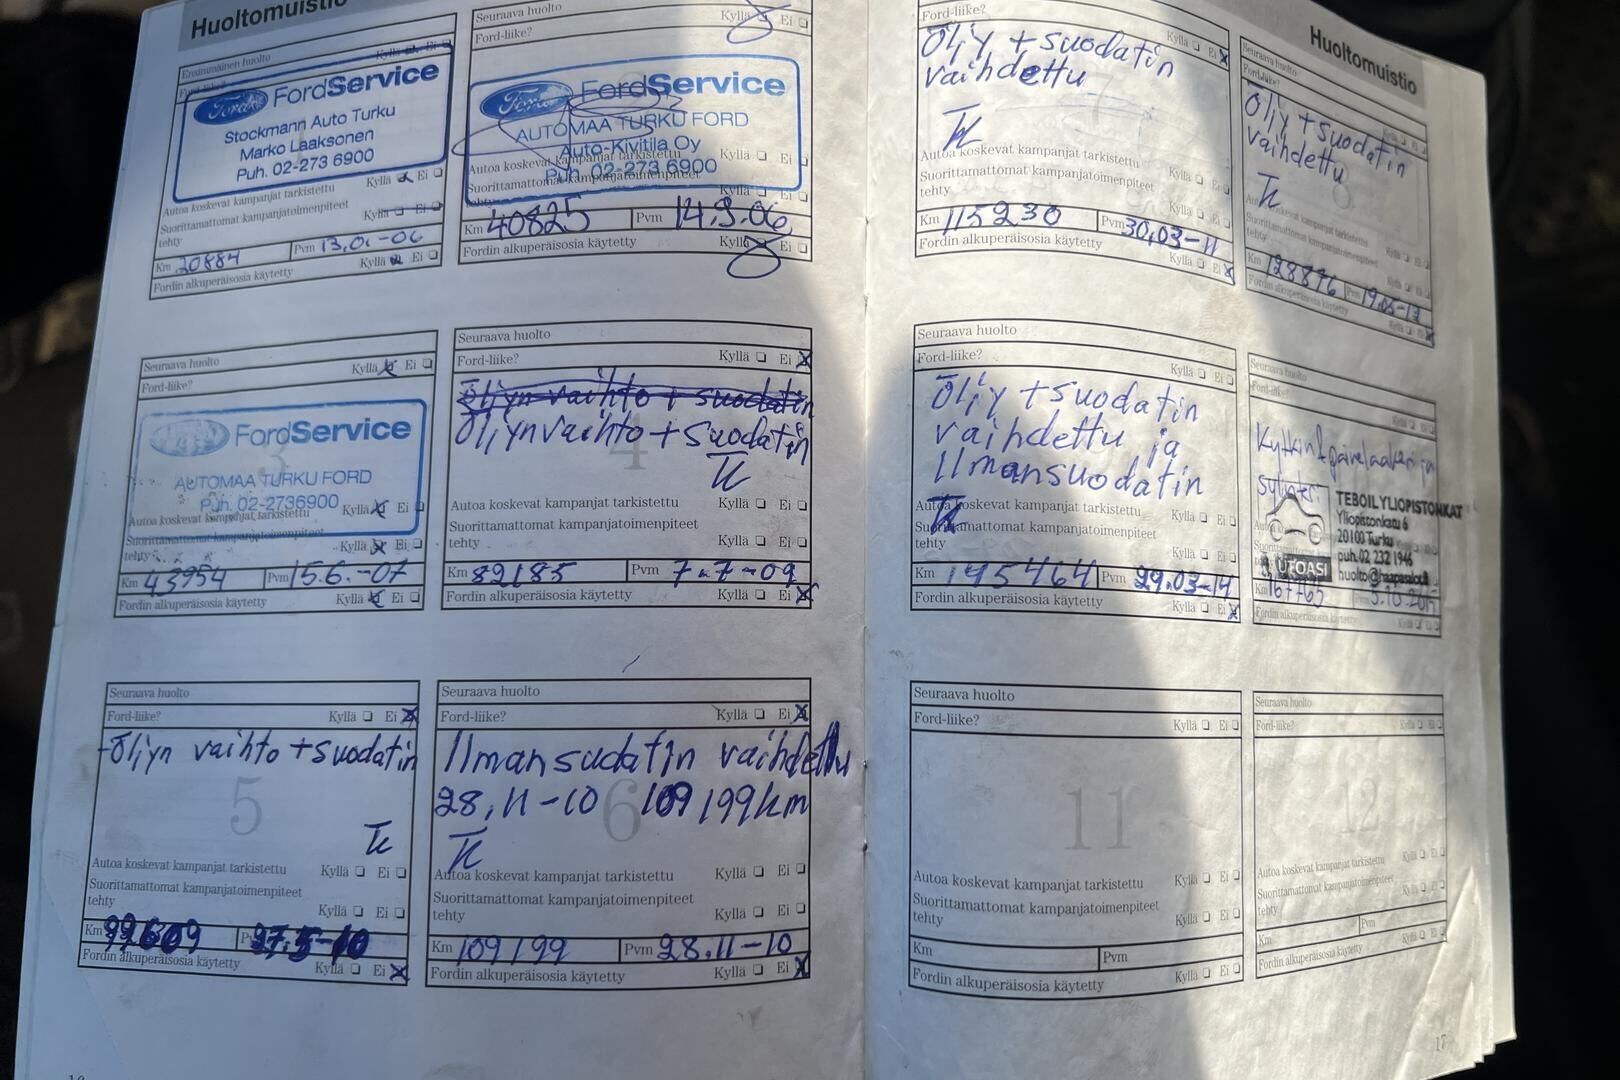 Huoltomuistio
Ensimmäinen huolto
Kyllä Ei
Ford FordService
Stockmann Auto Turku
Marko Laaksonen
Puh. 02-273 6900
Autoa koskevat kampanjat tarkistettu
Kyllä Ei
Suorittamattomat kampanjatoimenpiteet
tehty
Kyllä Ei
Km 20884 Pvm 13.01-06
Fordin alkuperäisosia käytetty Kyllä Ei
Seuraava huolto
Ford-liike? Kyllä Ei
Ford FordService
AUTOMAA TURKU FORD
Auto-Kivitila Oy
Puh. 02-273 6900
Autoa koskevat kampanjat tarkistettu Kyllä Ei
Suorittamattomat kampanjatoimenpiteet
tehty Kyllä Ei
Km 40825 Pvm 14.9.06
Fordin alkuperäisosia käytetty Kyllä Ei
Seuraava huolto
Ford-liike? Kyllä Ei
3
FordService
AUTOMAA TURKU FORD
Puh. 02-2736900
Autoa koskevat kampanjat tarkistettu Kyllä Ei
Suorittamattomat kampanjatoimenpiteet
tehty Kyllä Ei
Km 43954 Pvm 15.6.-07
Fordin alkuperäisosia käytetty Kyllä Ei
Seuraava huolto
Ford-liike? Kyllä Ei
Öljyn vaihto + suodatin
Öljynvaihto + suodatin
4
TK
Autoa koskevat kampanjat tarkistettu Kyllä Ei
Suorittamattomat kampanjatoimenpiteet
tehty Kyllä Ei
Km 82185 Pvm 7-7-09
Fordin alkuperäisosia käytetty Kyllä Ei
Seuraava huolto
Ford-liike? Kyllä Ei
-Öljyn vaihto + suodatin
5
TK
Autoa koskevat kampanjat tarkistettu Kyllä Ei
Suorittamattomat kampanjatoimenpiteet
tehty Kyllä Ei
Km 99609 27.5-10
Fordin alkuperäisosia käytetty Kyllä Ei
Seuraava huolto
Ford-liike? Kyllä Ei
Ilmansudatin vaihdettu
28.11-10 109199km
6
TK
Autoa koskevat kampanjat tarkistettu Kyllä Ei
Suorittamattomat kampanjatoimenpiteet
tehty Kyllä Ei
Km 109199 Pvm 28.11-10
Fordin alkuperäisosia käytetty Kyllä Ei
Huoltomuistio
Ford-liike? Kyllä Ei
Öljy + suodatin
vaihdettu
TK
Autoa koskevat kampanjat tarkistettu Kyllä Ei
Suorittamattomat kampanjatoimenpiteet
tehty Kyllä Ei
Km 115230 Pvm 30.03-11
Fordin alkuperäisosia käytetty Kyllä Ei
Seuraava huolto
Ford-liike?
Öljy + suodatin
vaihdettu
8
TK
Autoa koskevat kampanjat tarkistettu
Suorittamattomat kampanjatoimenpiteet
tehty
Km 128876 Pvm
Fordin alkuperäisosia käytetty Kyllä Ei
Seuraava huolto
Ford-liike? Kyllä Ei
Öljy + suodatin
vaihdettu ja
Ilmansuodatin
TK
Autoa koskevat kampanjat tarkistettu Kyllä Ei
Suorittamattomat kampanjatoimenpiteet
tehty Kyllä Ei
Km 145464 Pvm 29.03-14
Fordin alkuperäisosia käytetty Kyllä Ei
Seuraava huolto
Ford-liike?
TEBOIL YLIOPISTONKAT
Yliopistonkatu 6
20100 Turku
puh.02 232 1946
Km 167765
Fordin alkuperäisosia käytetty Kyllä Ei
Seuraava huolto
Ford-liike? Kyllä Ei
11
Autoa koskevat kampanjat tarkistettu Kyllä Ei
Suorittamattomat kampanjatoimenpiteet
tehty Kyllä Ei
Km Pvm
Fordin alkuperäisosia käytetty Kyllä Ei
Seuraava huolto
Ford-liike? Kyllä Ei
12
Autoa koskevat kampanjat tarkistettu Kyllä Ei
Suorittamattomat kampanjatoimenpiteet
tehty Kyllä Ei
Km Pvm
Fordin alkuperäisosia käytetty Kyllä Ei
17